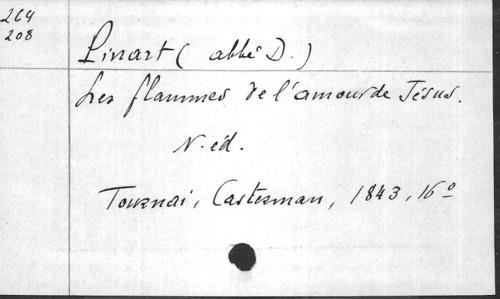 264
208
Pinart ( abbé D. )
Les flammes de l'amour de Jésus.
N. éd.
Tournai, Casterman, 1843, 16º